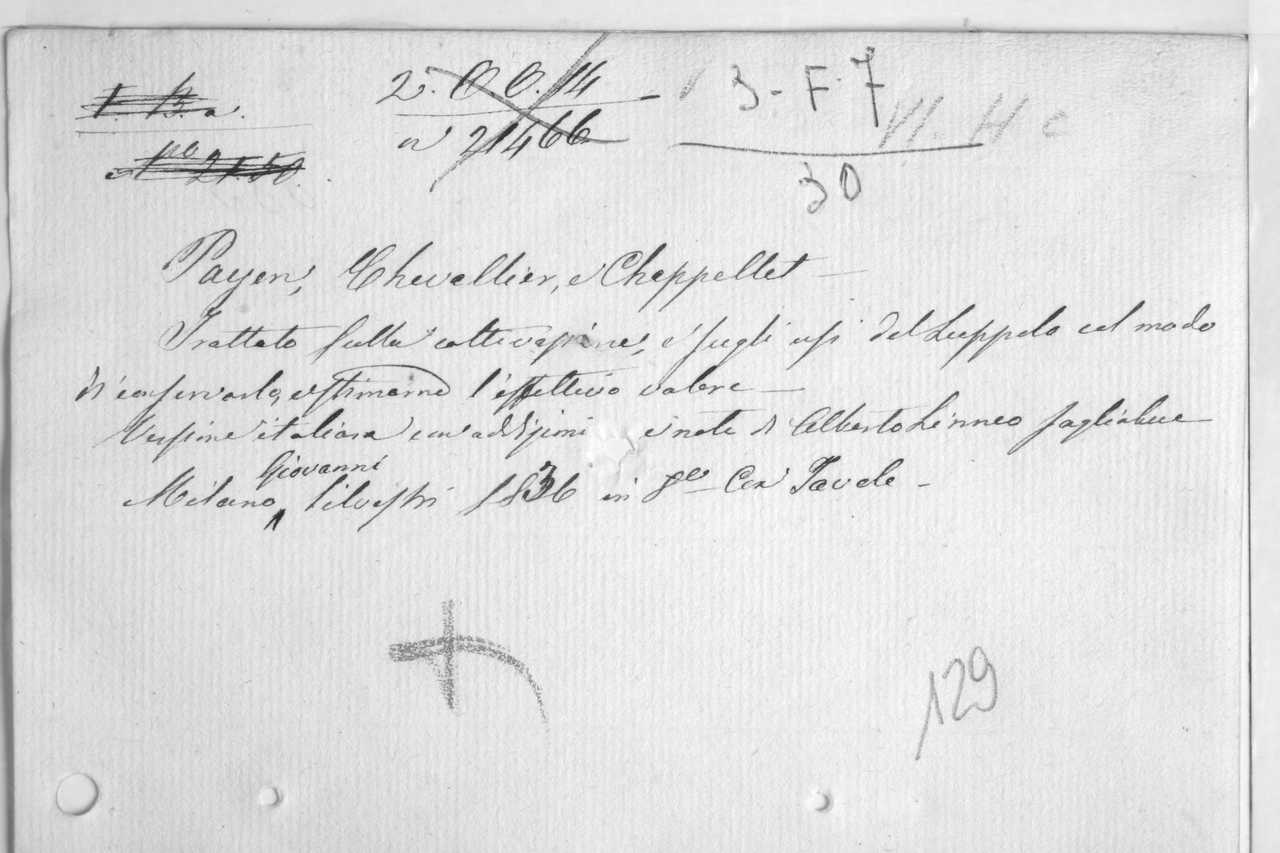 1. B. a.
2. O O. 14
3 - F. 7
VI. H c
Nº 2150.
nº 21466
30
Payen, Chevallier, e Chappellet —
Trattato sulla coltivazione, e sugli usi del Luppolo col modo
di conservarlo, estimarne l'effettivo valore —
Versione italiana con addizioni e note di Alberto Linneo Tagliabue
Giovanni
Milano, Silvestri 1836 in 8º Con Tavole -
129